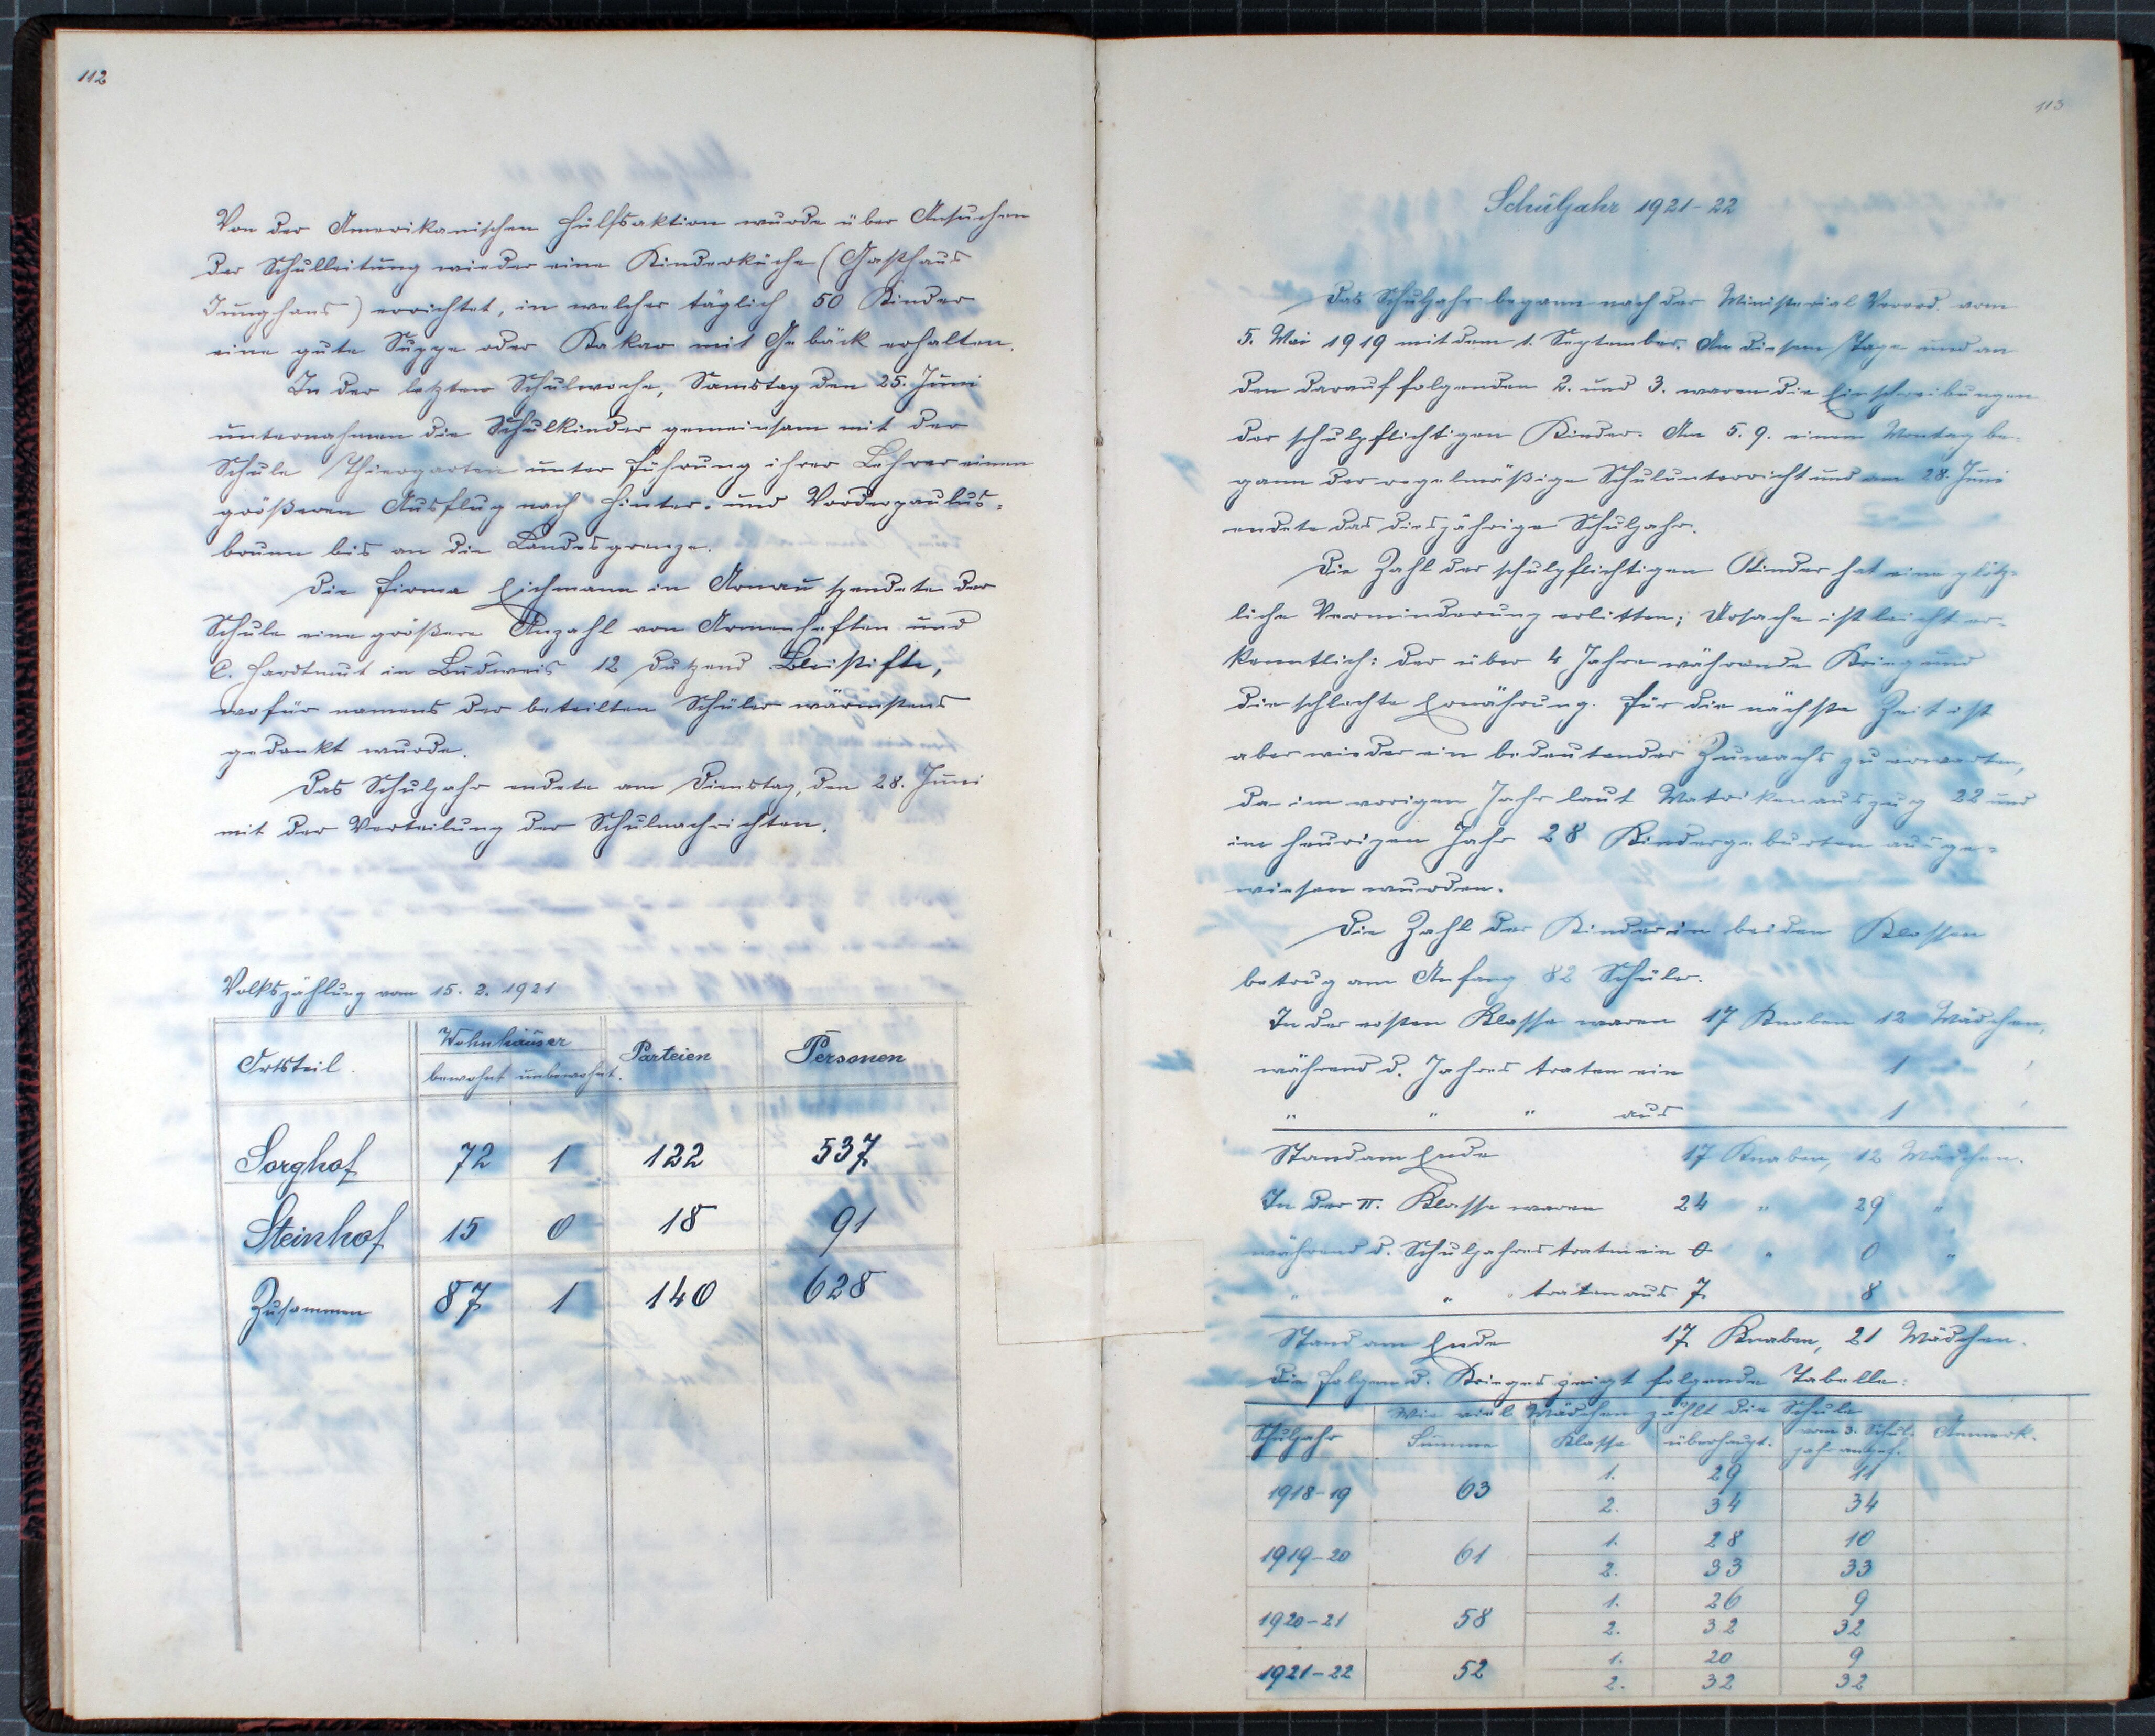 112
Von der Amerikanischen Hülfsaktion wurde über Ansuchen
der Schulleitung wieder eine Kinderküche (Gasthaus
Junghans) errichtet, in welcher täglich 50 Kinder
eine gute Suppe oder Kakao mit Gebäck erhalten.
In der letzten Schulwoche, Samstag den 25. Juni
unternahmen die Schulkinder gemeinsam mit der
Schule Thiergarten unter Führung ihrer Lehrer einen
größeren Ausflug nach Hinter- und Vorderpaulus-
brunn bis an die Landesgrenze.
Die Firma Eichmann in Arnau spendete der
Schule eine größere Anzahl von Armenheften und
C. Hardtmut in Budweis 12 Dutzend Bleistifte,
wofür namens der beteilten Schüler wärmstens
gedankt wurde.
Das Schuljahr endete am Dienstag, den 28. Juni
mit der Verteilung der Schulnachrichten.
Volkszählung vom 15. 2. 1921
Ortsteil. Wohnhäuser Parteien Personen
bewohnt unbewohnt.
Sorghof 72 1 122 537
Steinhof 15 0 18 91
Zusammen 87 1 140 628
113
Schuljahr 1921-22
Das Schuljahr begann nach der Ministerial Verord. vom
5. Mai 1919 mit dem 1. September. An diesem Tage und an
den darauf folgenden 2. und 3. waren die Einschreibungen
der schulpflichtigen Kinder. Am 5. 9. einem Montag be-
gann der regelmäßige Schulunterricht und am 28. Juni
endete das diesjährige Schuljahr.
Die Zahl der schulpflichtigen Kinder hat eine plötz-
liche Verminderung erlitten; Ursache ist leicht er-
kenntlich: der über 4 Jahre währende Krieg und
die schlechte Ernährung. Für die nächste Zeit ist
aber wieder ein bedeutender Zuwachs zu erwarten,
da im vorigen Jahr laut Matrikenauszug 22 und
im heurigen Jahr 28 Kindergeburten ausge-
wiesen wurden.
Die Zahl der Kinder in beiden Klassen
betrug am Anfang 82 Schüler.
In der ersten Klasse waren 17 Knaben 12 Mädchen,
während d. Jahres traten ein 1
" " " aus 1
Stand am Ende 17 Knaben, 12 Mädchen.
In der II. Klasse waren 24 " 29 "
während d. Schuljahres traten ein 0 " 0 "
" " traten aus 7 8
Stand am Ende 17 Knaben, 21 Mädchen.
Die Folgen d. Krieges zeigt folgende Tabelle:
Schuljahr Wie viel Mädchen zählt die Schule
Summe Klasse überhaupt. vom 3. Schul- Anmerk.
jahr angef.
1918-19 63 1. 29 11
2. 34 34
1919-20 61 1. 28 10
2. 33 33
1920-21 58 1. 26 9
2. 32 32
1921-22 52 1. 20 9
2. 32 32